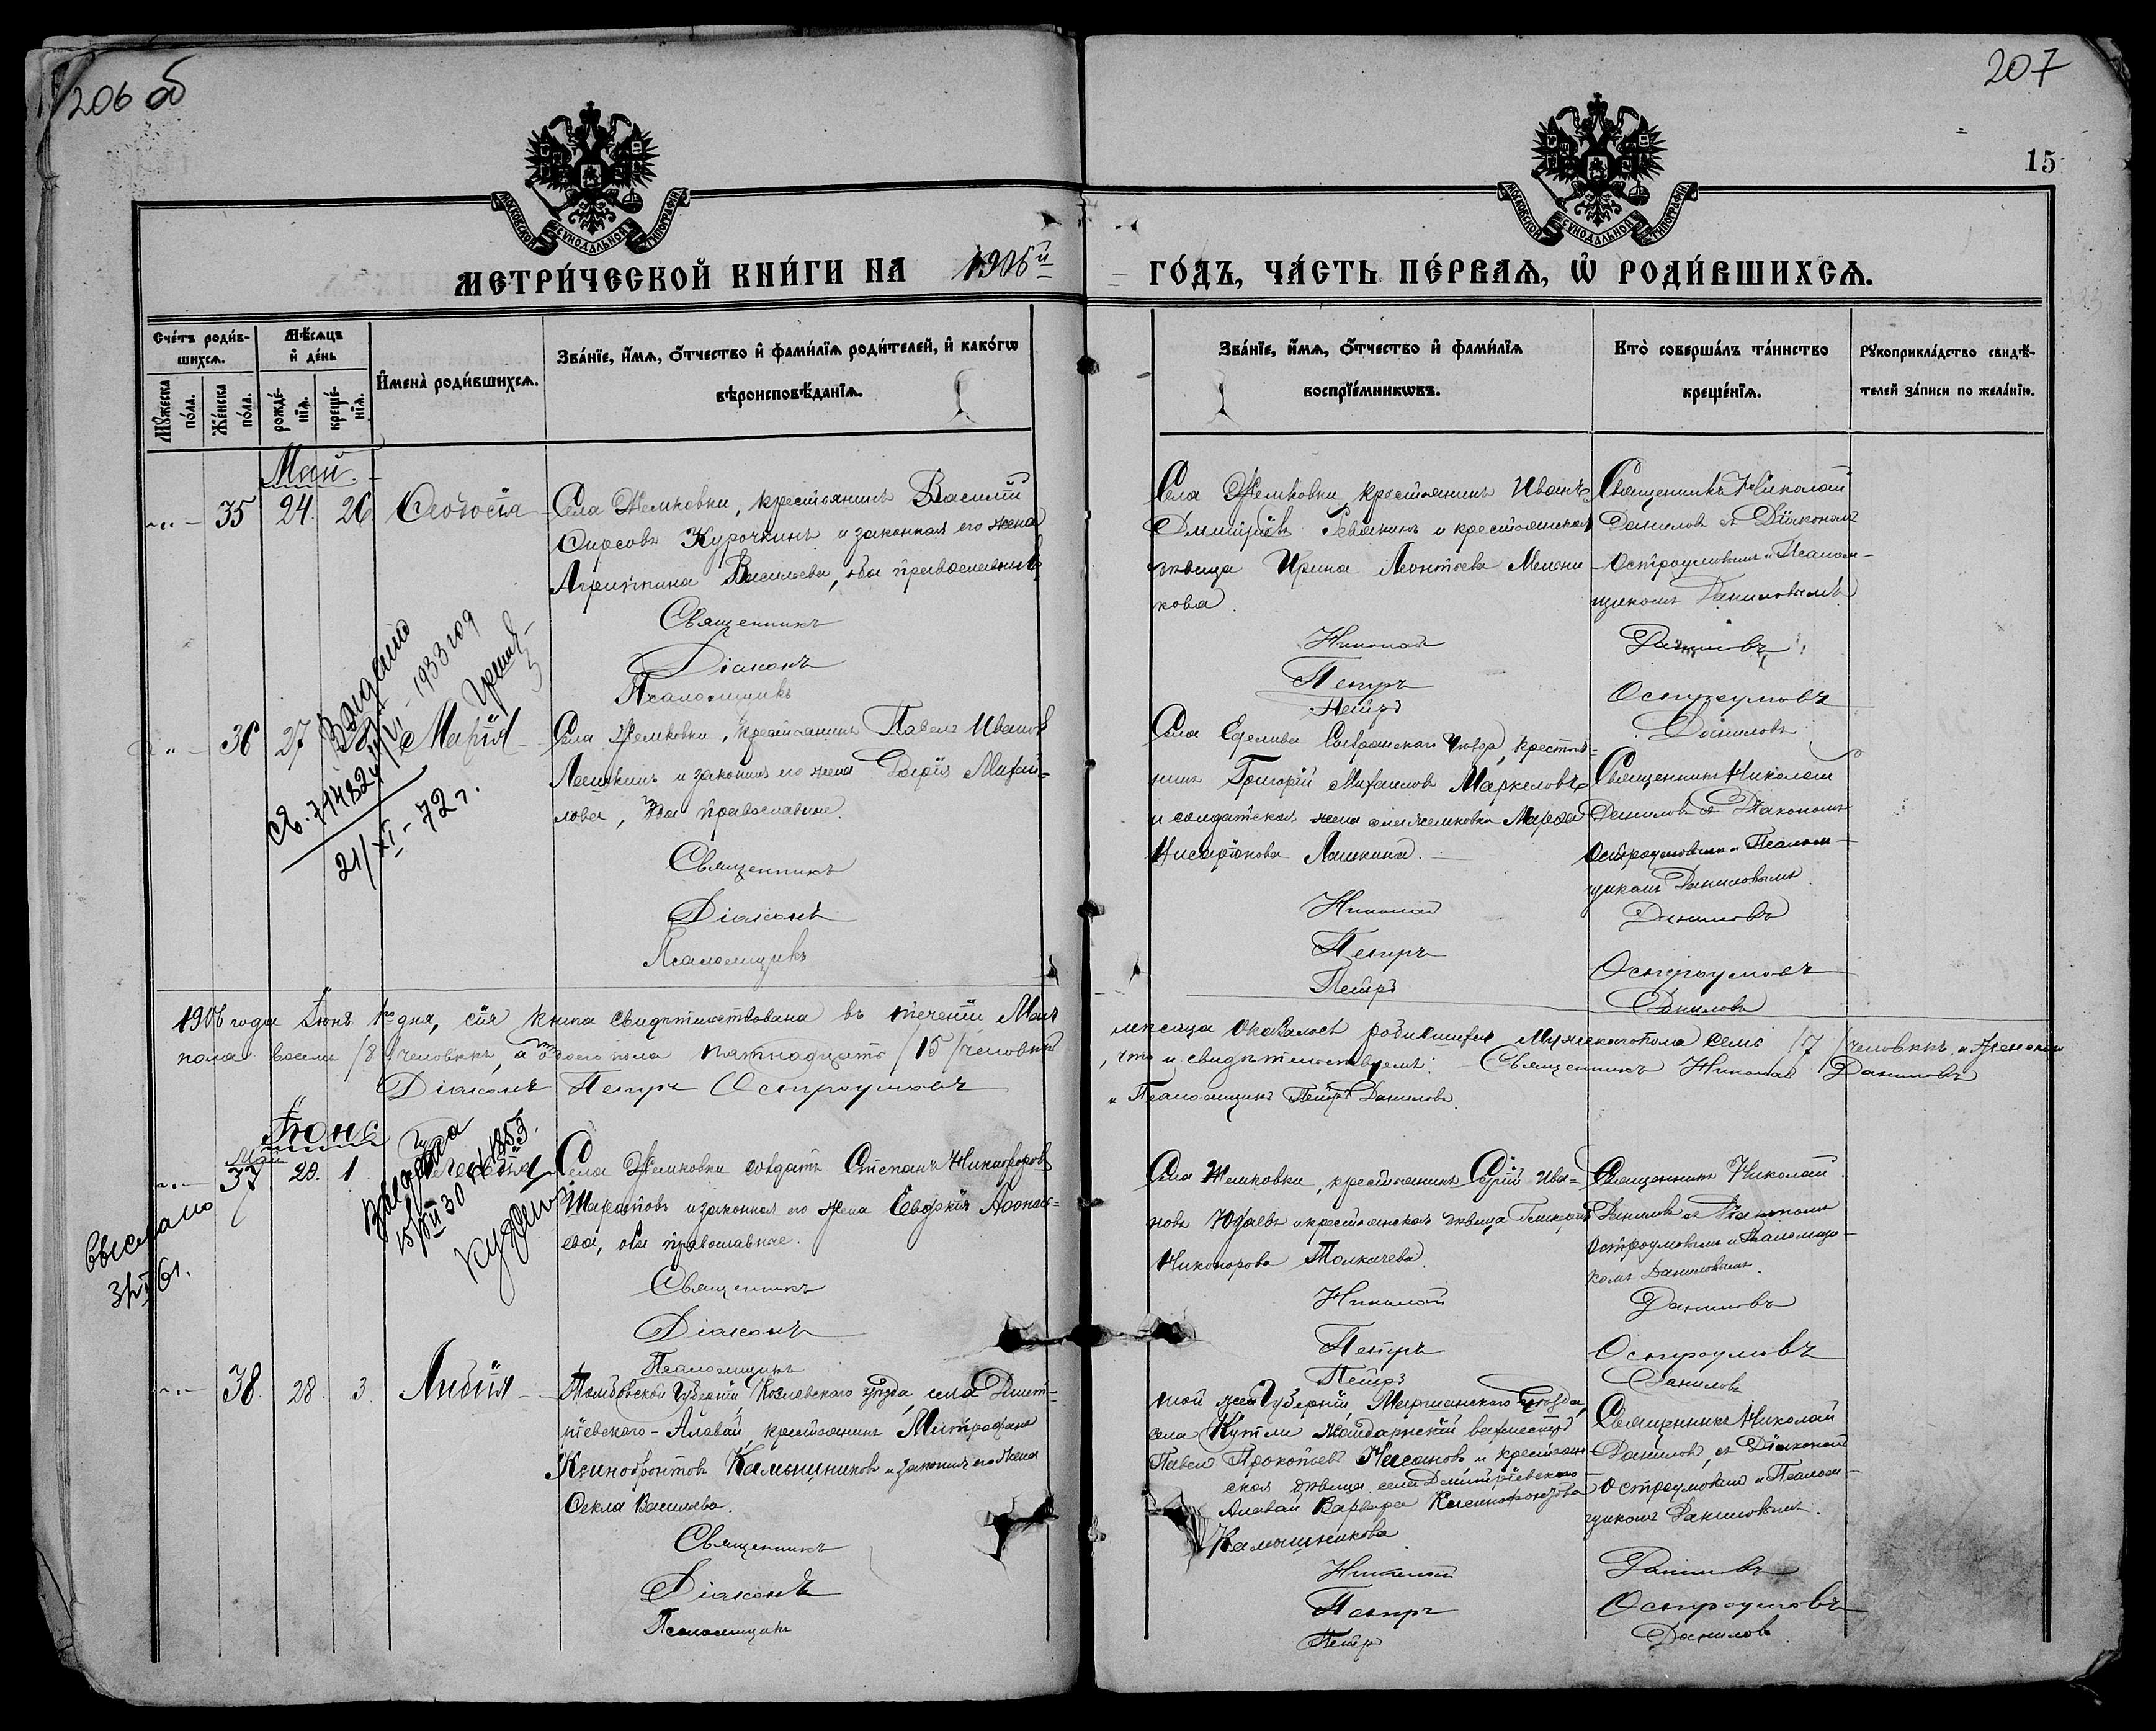 206 об
207
15
МОСКОВСКОЙ СѴНОДАЛЬНОЙ ТИПОГРАФІИ
МОСКОВСКОЙ СѴНОДАЛЬНОЙ ТИПОГРАФІИ
МЕТРИ́ЧЕСКОЙ КНИ́ГИ НА 1906й
ГО́ДЪ, ЧА́СТЬ ПЕ́РВАѦ, Ѡ҆ РОДИ́ВШИХСѦ.
Сче́тъ роди́в-
шихсѧ.
Мꙋ́жеска
по́ла.
Же́нска
по́ла.
Мѣ́сѧцъ
и҆ де́нь
рожде́-
нїѧ.
креще́-
нїѧ.
И҆мена̀ роди́вшихсѧ.
Зва́нїе, и҆́мѧ, ѻ҆́тчество и҆ фами́лїѧ роди́телей, и҆ како́гѡ
вѣроисповѣ́данїѧ.
Зва́нїе, и҆́мѧ, ѻ҆́тчество и҆ фами́лїѧ
воспрїе́мникѡвъ.
Кто̀ соверша́лъ та́инство
креще́нїѧ.
Рꙋкоприкла́дство свидѣ́-
телей за́писи по жела́нїю.
Май.
35 24. 26 Ѳеодосія
Села Жемковки, крестьянинъ Василій
Фирсовъ Курочкинъ и законная его жена
Агриппина Васильева, оба православные
Священникъ
Діаконъ
Псаломщикъ
Села Жемковки, крестьянинъ Иванъ
Димитріевъ и крестьянская
дѣвица Ирина Леонтьева Мельни
кова.
Николай
Петръ
Петръ
Священникъ Николай
Даниловъ съ Діакономъ
Остроумовымъ и Псалом-
щикомъ Даниловымъ
Даниловъ
Остроумовъ
Даниловъ
36 27 Марія
Выдано
1933 год
св. 714824
21/XI-72 г.
Села Жемковки, крестьянинъ Павелъ Ивановъ
Лашкинъ и законная его жена Марія Михай-
лова, оба православные.
Священникъ
Діаконъ
Псаломщикъ
Села Сызранскаго Уѣзда, крестья-
нинъ Григорій Михаиловъ Маркеловъ
и солдатская жена села Жемковки Марѳа
Лашкина.
Николай
Петръ
Петръ
Священникъ Николай
Даниловъ съ Діакономъ
Остроумовымъ и Псалом-
щикомъ Даниловымъ
Даниловъ
Остроумовъ
Даниловъ
1906 года Іюня 1го дня, сія книга свидѣтельствована въ теченіи Мая
мѣсяца оказалось родившихся Мужескаго пола семь /7/ человѣкъ, и Женскаго
пола восемь /8/ человѣкъ, а обоего пола пятнадцать /15/ человѣкъ
, что и свидѣтельствуемъ: Священникъ Николай Даниловъ
Діаконъ Петръ Остроумовъ
и Псаломщикъ Петръ Даниловъ.
Іюнь
Май
37 29. 1
Пелагія
Выслано
Села Жемковки солдатъ Степанъ Никифоровъ
Шараповъ и законная его жена Евдокія Аѳонась-
ева, оба православные.
Священникъ
Діаконъ
Псаломщикъ
Села Жемковки, крестьянинъ Сергій Ива-
новъ Юдаевъ и крестьянская дѣвица
Никонорова Толкачева.
Николай
Петръ
Петръ
Священникъ Николай
Даниловъ съ Діакономъ
Остроумовымъ и Псаломщи-
комъ Даниловымъ.
Даниловъ
Остроумовъ
Даниловъ
38. 28. 3. Лидія
Тамбовской Губерніи Козловскаго уѣзда, села Димит-
ріевскаго-Алабай, крестьянинъ Митрофанъ
Ксинофонтовъ Камышниковъ и законная его жена
Ѳекла Васильева.
Священникъ
Діаконъ
Псаломщикъ
той же Губерніи, Моршанскаго Уѣзда,
села Кутли
Павелъ Прокопьевъ и крестьян-
ская дѣвица села Димитріевскаго-
Алабай Варвара Ксенофонтова
Камышникова.
Николай
Петръ
Петръ
Священникъ Николай
Даниловъ, съ Діакономъ
Остроумовымъ и Псалом-
щикомъ Даниловымъ.
Даниловъ
Остроумовъ
Даниловъ